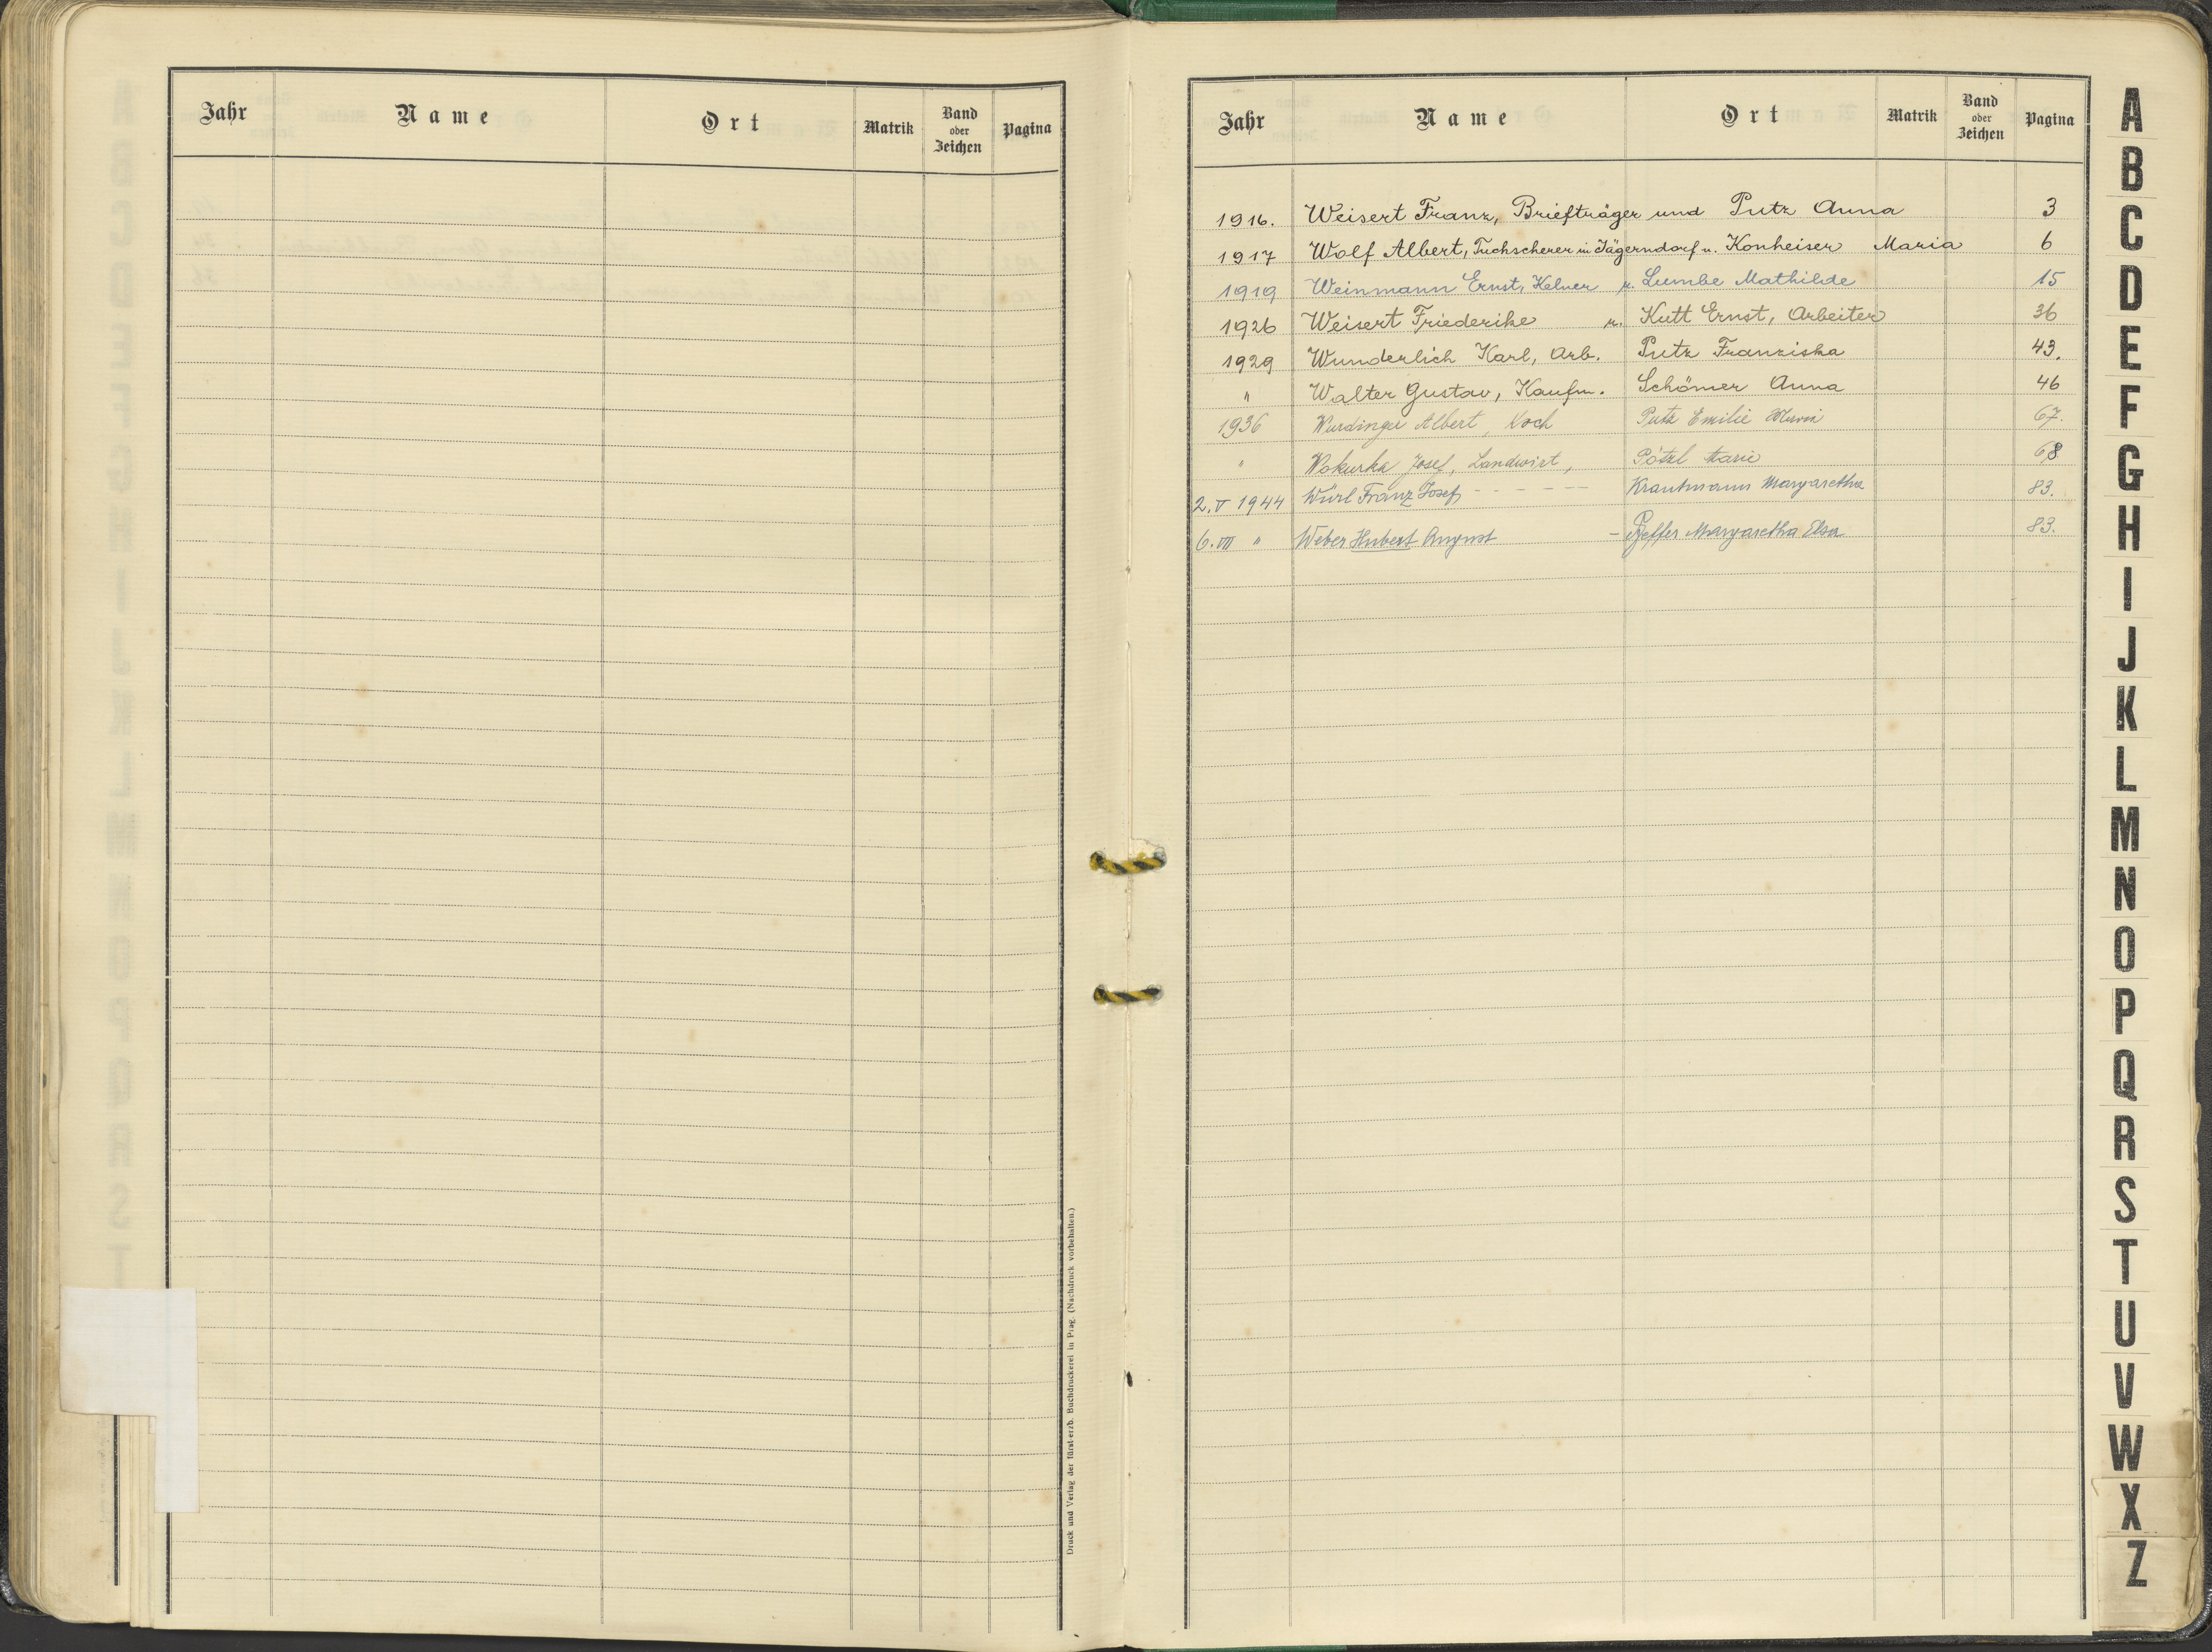 Jahr Name Ort Matrik Band oder Zeichen Pagina
Druck und Verlag der fürst-erzb. Buchdruckerei in Prag. (Nachdruck vorbehalten.)
Jahr Name Ort Matrik Band oder Zeichen Pagina
1916. Weisert Franz, Briefträger und Putz Anna 3
1917 Wolf Albert, Tuchscherer in Jägerndorf u. Konheiser Maria 6
1919 Weinmann Ernst, Kelner u. Lumbe Mathilde 15
1926 Weisert Friederike u. Kutt Ernst, Arbeiter 36
1929 Wunderlich Karl, Arb. Putz Franziska 43.
" Walter Gustav, Kaufm. Schömer Anna 46
1936 Wurdinger Albert, Koch Putz Emilie 67.
" Wokurka Josef, Landwirt, Pötzl Marie 68
2. V 1944 Würl Franz Josef - - - - - Krautmann Margaretha 83.
6. VII " Weber Hubert August - Pfeffer Margaretha Elsa 83.
A
B
C
D
E
F
G
H
I
J
K
L
M
N
O
P
Q
R
S
T
U
V
W
X
Z